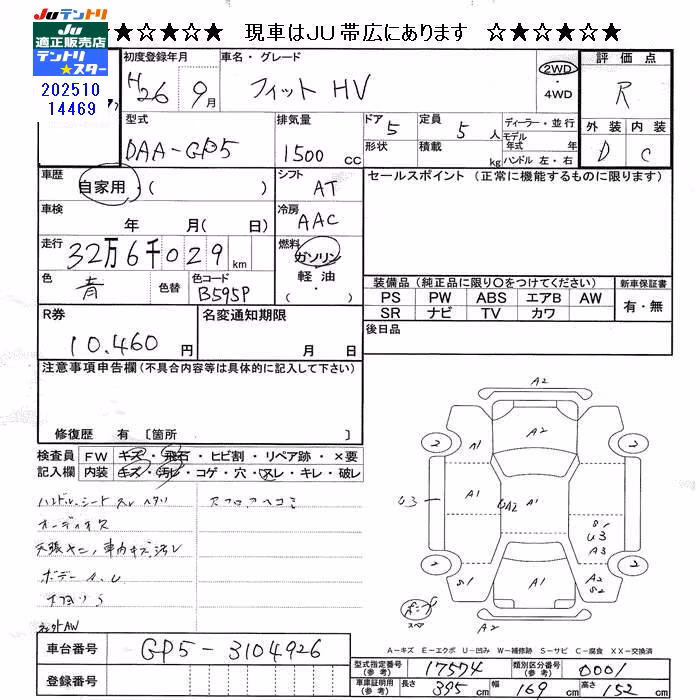 Juテントリ
Ju
適正販売店
テントリ
★スター
202510
14469
★☆★☆★ 現車はJU帯広にあります ☆★☆★☆★
初度登録年月 車名・グレード
H26 9月 フィット HV
2WD・4WD
評価点
R
外装 内装
D C
型式 排気量 ドア 定員 ディーラー・並行
DAA-GP5 1500cc 5 5人
形状 積載 kg
モデル年式 年
ハンドル 左・右
車歴 シフト セールスポイント (正常に機能するものに限ります)
自家用・( ) AT
車検 冷房
年 月( 日) AAC
走行 燃料
32万6千029km ガソリン・軽油・( )
色 色替 色コード
青 B595P
装備品 (純正品に限り○をつけてください) 新車保証書
PS PW ABS エアB AW 有・無
SR ナビ TV カワ
R券 名変通知期限 後日品
10.460円 月 日
注意事項申告欄 (不具合内容等は具体的に記入して下さい)
修復歴 有 〔箇所 〕
検査員 FW キズ・飛石・ヒビ割・リペア跡・×要
記入欄 内装 キズ・汚レ・コゲ・穴・スレ・キレ・破レ
ハンドル、シート スレ ヘタリ
オーディオ欠
天張ヤニ、車内キズ、汚レ
ボデー A.U
社外AW
A2
2 A1 A2 2
U3 A1 UA2 A1 S1 U3 A3
2 S1 A1 A2 S2 2
スペア
A2
A-キズ E-エクボ U-凹み W-補修跡 S-サビ C-腐食 XX-交換済
車台番号 GP5-3104926
登録番号
型式指定番号(参考) 17574 類別区分番号(参考) 0001
車庫証明用(参考) 長さ 395cm 幅 169cm 高さ 152cm